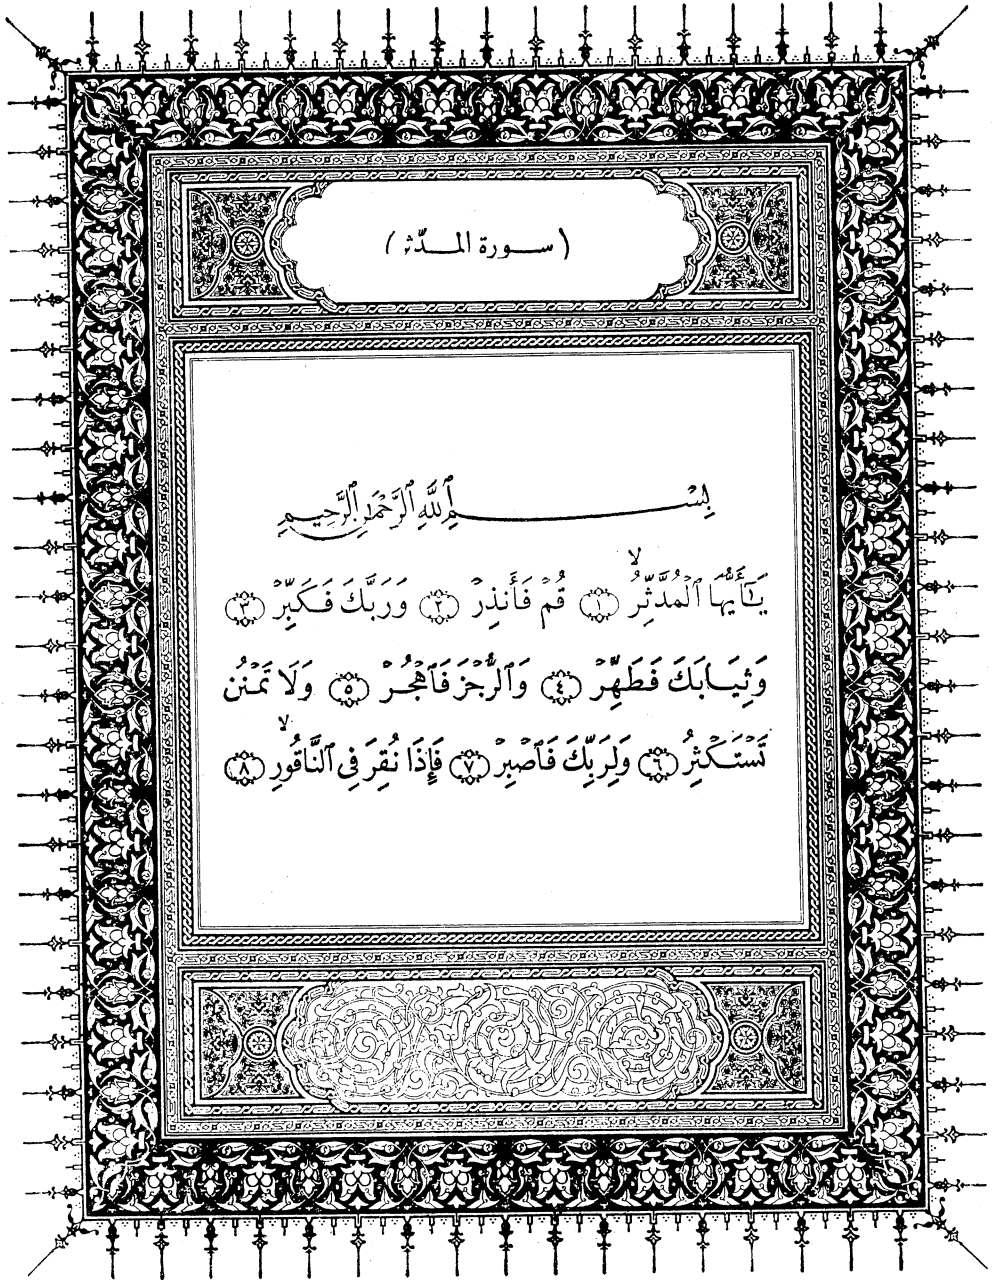 (سورة المدّثر)
بِسْمِ ٱللَّهِ ٱلرَّحْمَٰنِ ٱلرَّحِيمِ
يَٰٓأَيُّهَا ٱلْمُدَّثِّرُ ۙ ١ قُمْ فَأَنذِرْ ٢ وَرَبَّكَ فَكَبِّرْ ٣
وَثِيَابَكَ فَطَهِّرْ ٤ وَٱلرُّجْزَ فَٱهْجُرْ ٥ وَلَا تَمْنُن
تَسْتَكْثِرُ ٦ وَلِرَبِّكَ فَٱصْبِرْ ٧ فَإِذَا نُقِرَ فِى ٱلنَّاقُورِ ۙ ٨